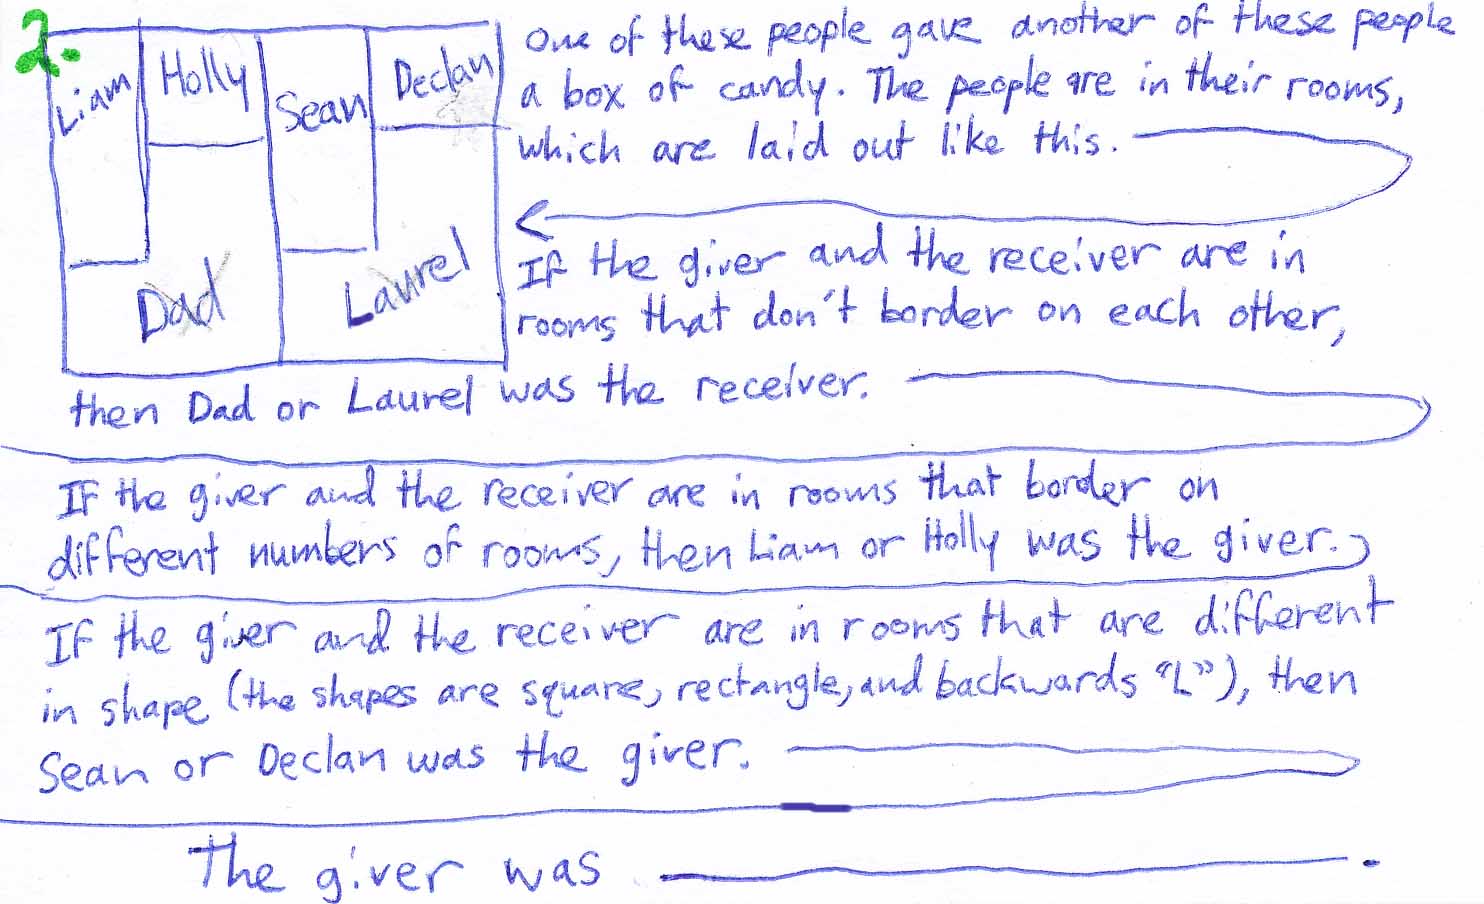 2.
Liam
Holly
Sean
Declan
Dad
Laurel
One of these people gave another of these people
a box of candy. The people are in their rooms,
which are laid out like this.
If the giver and the receiver are in
rooms that don't border on each other,
then Dad or Laurel was the receiver.
If the giver and the receiver are in rooms that border on
different numbers of rooms, then Liam or Holly was the giver.
If the giver and the receiver are in rooms that are different
in shape (the shapes are square, rectangle, and backwards "L"), then
Sean or Declan was the giver.
The giver was